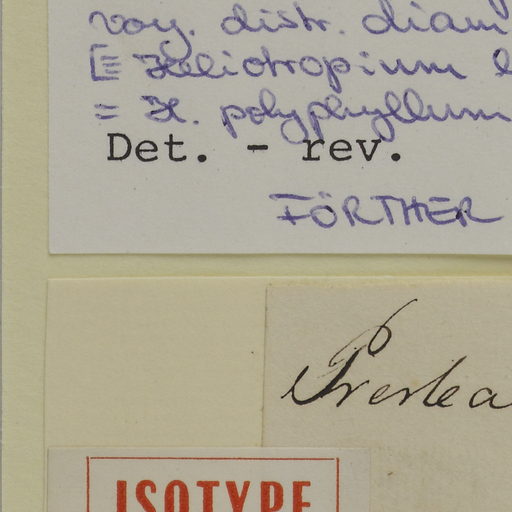 voy. distr. diam
[≡ Heliotropium l
= H. polyphyllum
Det. - rev.
FÖRTHER
Preslea
ISOTYPE